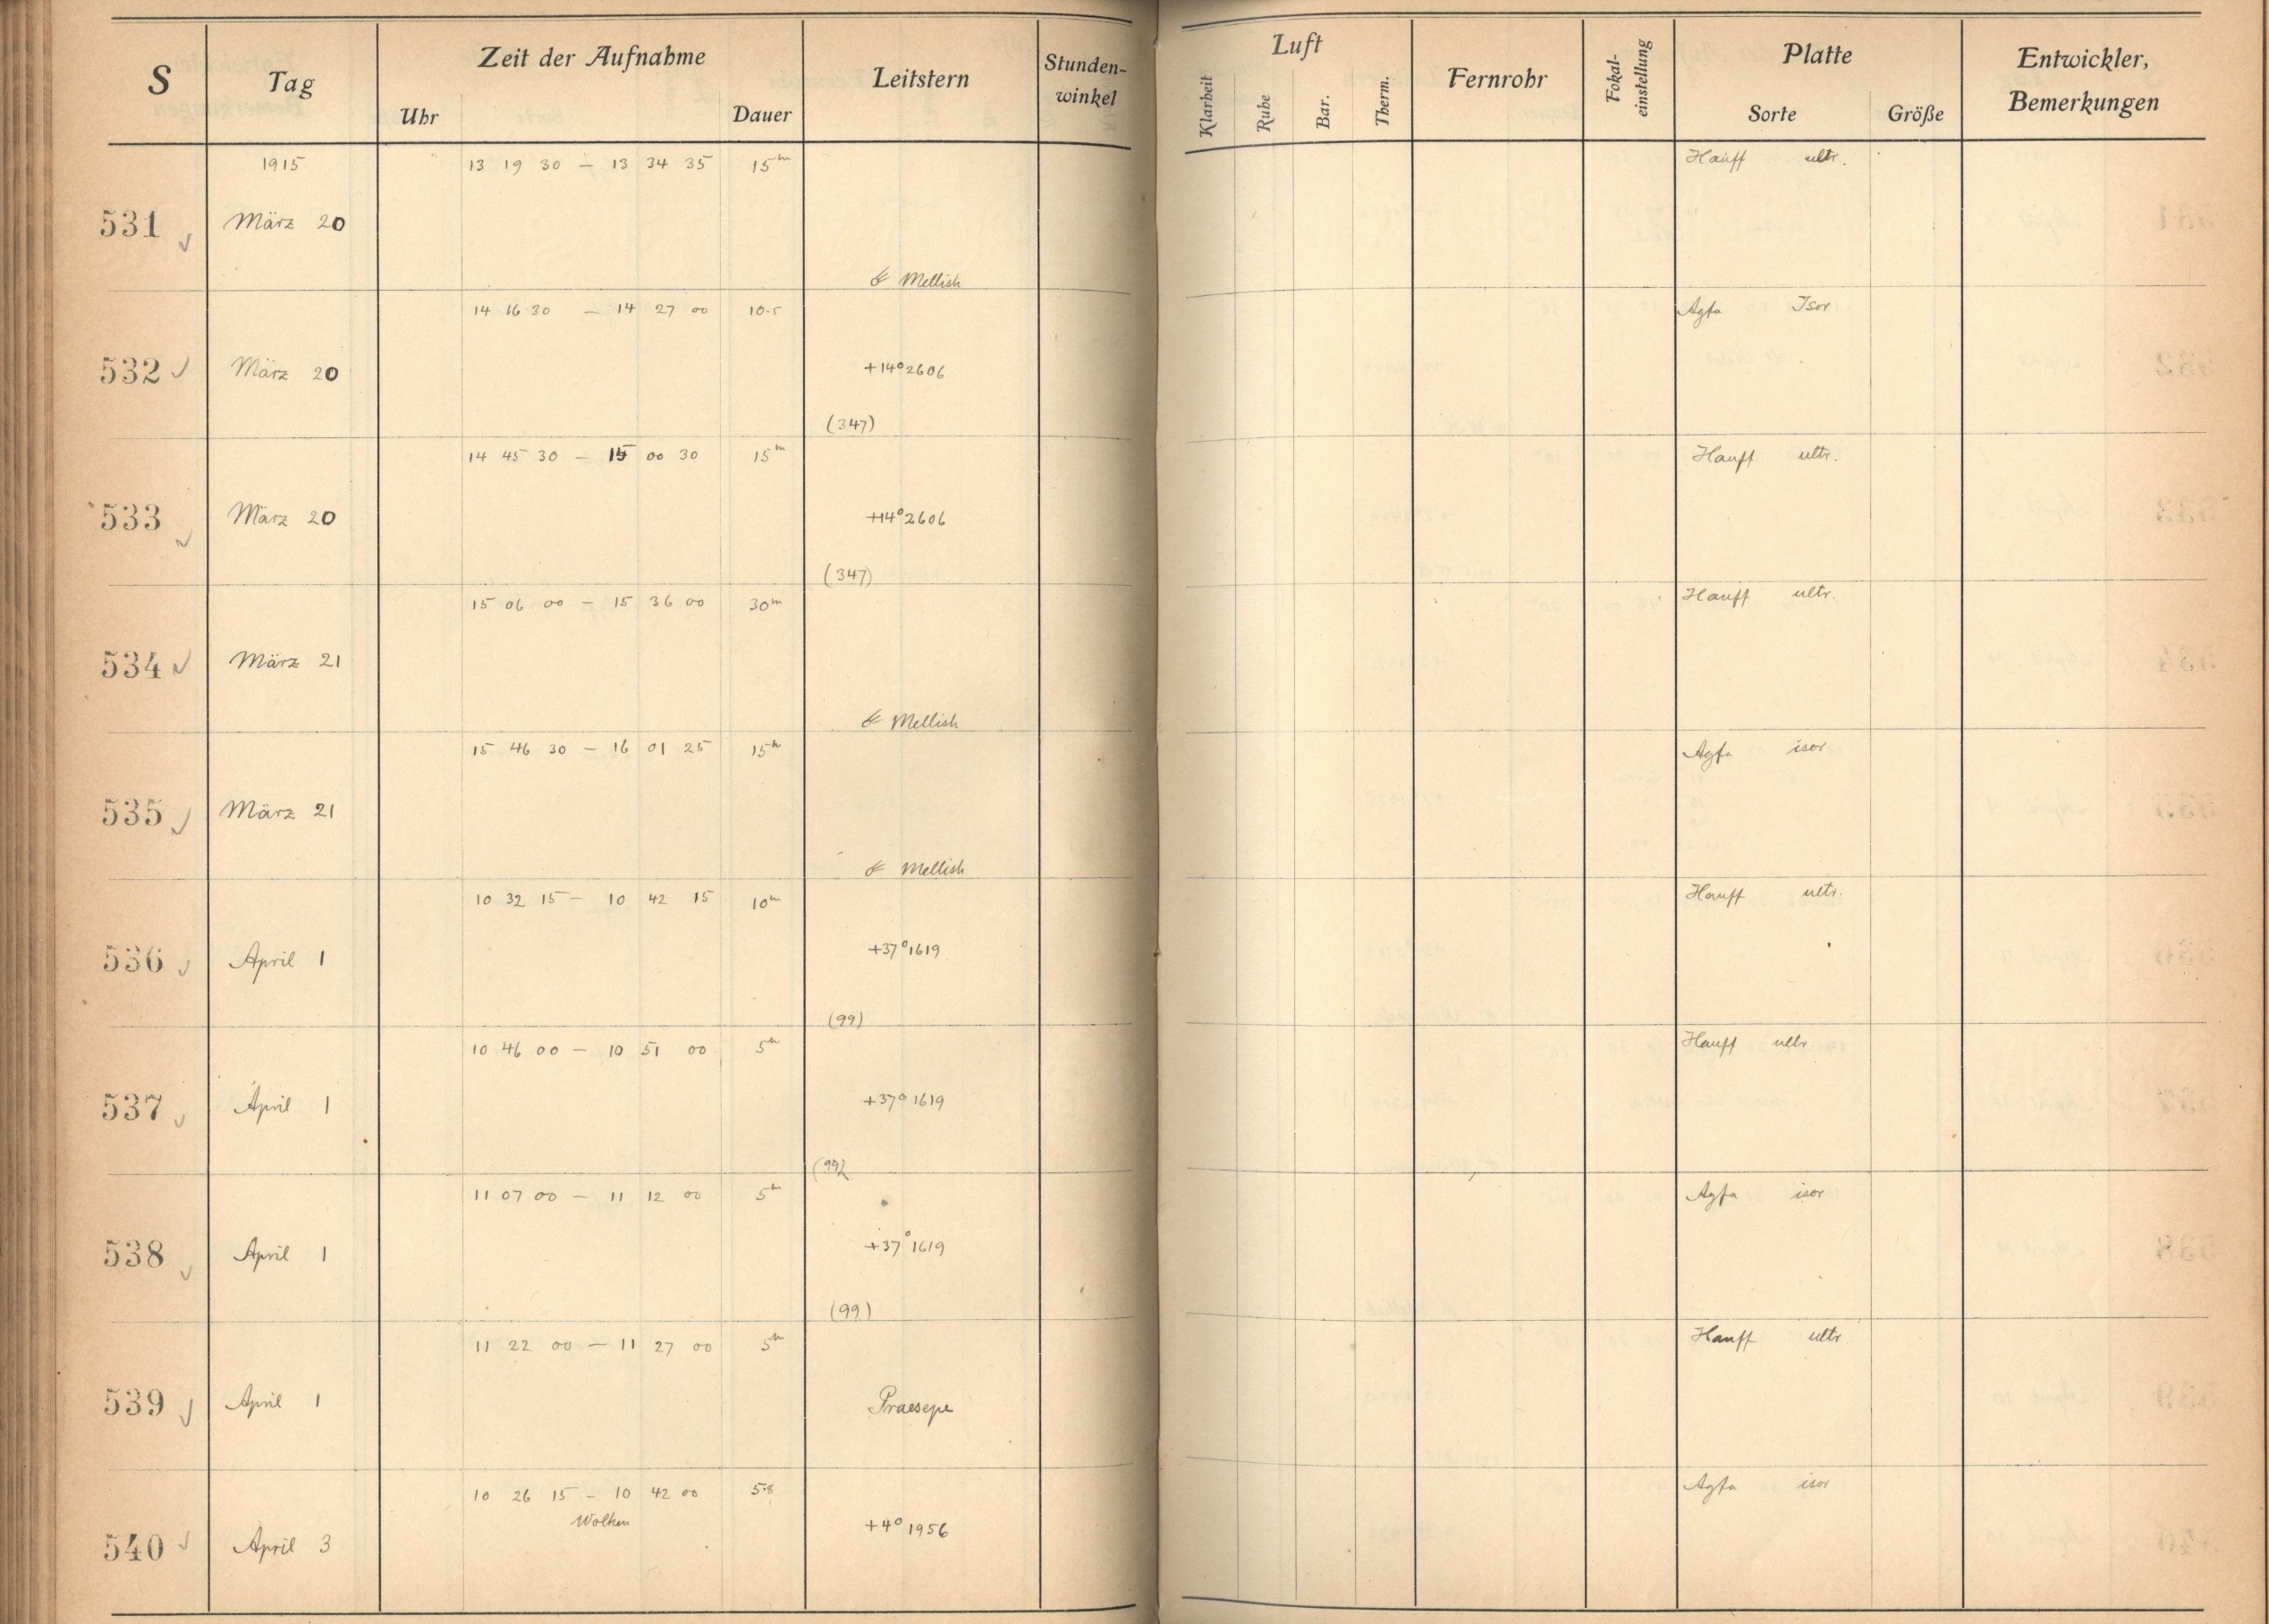 S Tag Zeit der Aufnahme Leitstern Stunden-winkel Luft Fernrohr Fokal-einstellung Platte Entwickler, Bemerkungen
Uhr Dauer Klarheit Ruhe Bar. Therm. Sorte Größe
1915 13 19 30 — 13 34 35 15m Hauff ultr.
531 März 20
☄ Mellish
14 16 30 — 14 27 00 10.5 Agfa Isor
532 März 20 +14°2606
(347)
14 45 30 — 15 00 30 15m Hauff ultr.
533 März 20 +14°2606
(347)
15 06 00 — 15 36 00 30m Hauff ultr.
534 März 21
☄ Mellish
15 46 30 — 16 01 25 15m Agfa isor
535 März 21
☄ Mellish
10 32 15 — 10 42 15 10m Hauff ultr.
536 April 1 +37°1619
(99)
10 46 00 — 10 51 00 5m Hauff ultr
537 April 1 +37°1619
(99)
11 07 00 — 11 12 00 5m Agfa isor
538 April 1 +37°1619
(99)
11 22 00 — 11 27 00 5m Hauff ultr
539 April 1 Praesepe
10 26 15 — 10 42 00 5.8 Agfa isor
Wolken
540 April 3 +4°1956